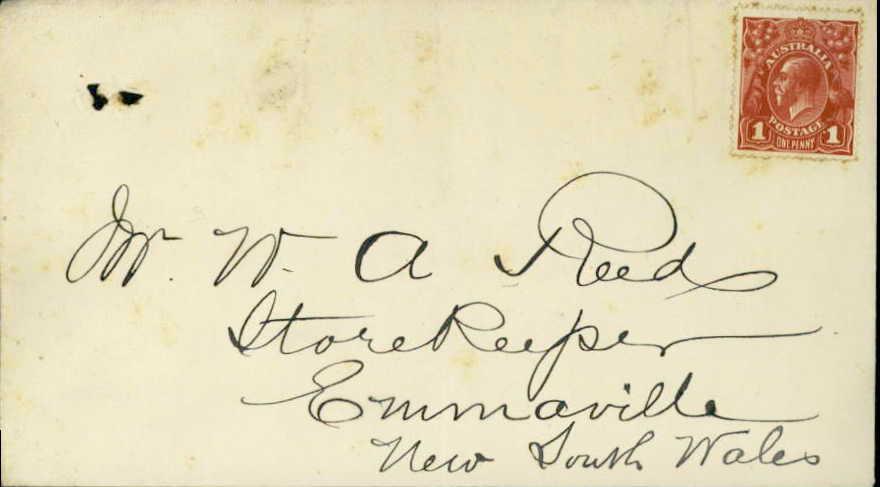 AUSTRALIA
POSTAGE
1 ONE PENNY 1
Mr. W. A Reed
Storekeeper
Emmaville
New South Wales